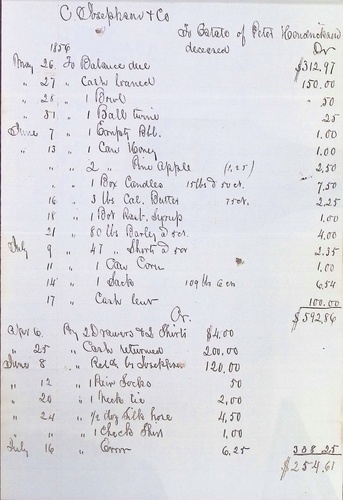 C. Josephson & Co
To Estate of Peter
deceased Dr
1856
May 26 To Balance due $312.97
" 27 " Cash loaned 150.00
" 28 " 1 Bowl 50
" 31 " 1 Ball twine 25
June 7 " 1 Empty Bbl. 1.00
" 13 " 1 Can Honey 1.00
" " " 2 " Pine Apple (1.25) 2.50
" " 1 Box Candles 15 lbs @ 50 ct. 7.50
16 " 3 lbs Cal. Butter 75 ct. 2.25
18 " 1 Bot Syrup 1.00
21 " 80 lbs Barley @ 5 ct. 4.00
July 9 " 47 " Shorts @ 5 ct 2.35
11 " 1 Can Corn 1.00
14 " 1 Sack 109 lbs @ 6 cts 6.54
17 " Cash lent 100.00
Cr. $592.86
Apr 6. By 2 Drawers & 2 Shirts $4.00
" 25 " Cash returned 200.00
June 8 " by Josephson 120.00
" 12 " 1 Pair Socks 50
" 20 " 1 Neck tie 2.00
" 24 " 1/2 doz Silk hose 4.50
" " " 1 Check Shirt 1.00
July 16 " Error 6.25 338.25
$254.61